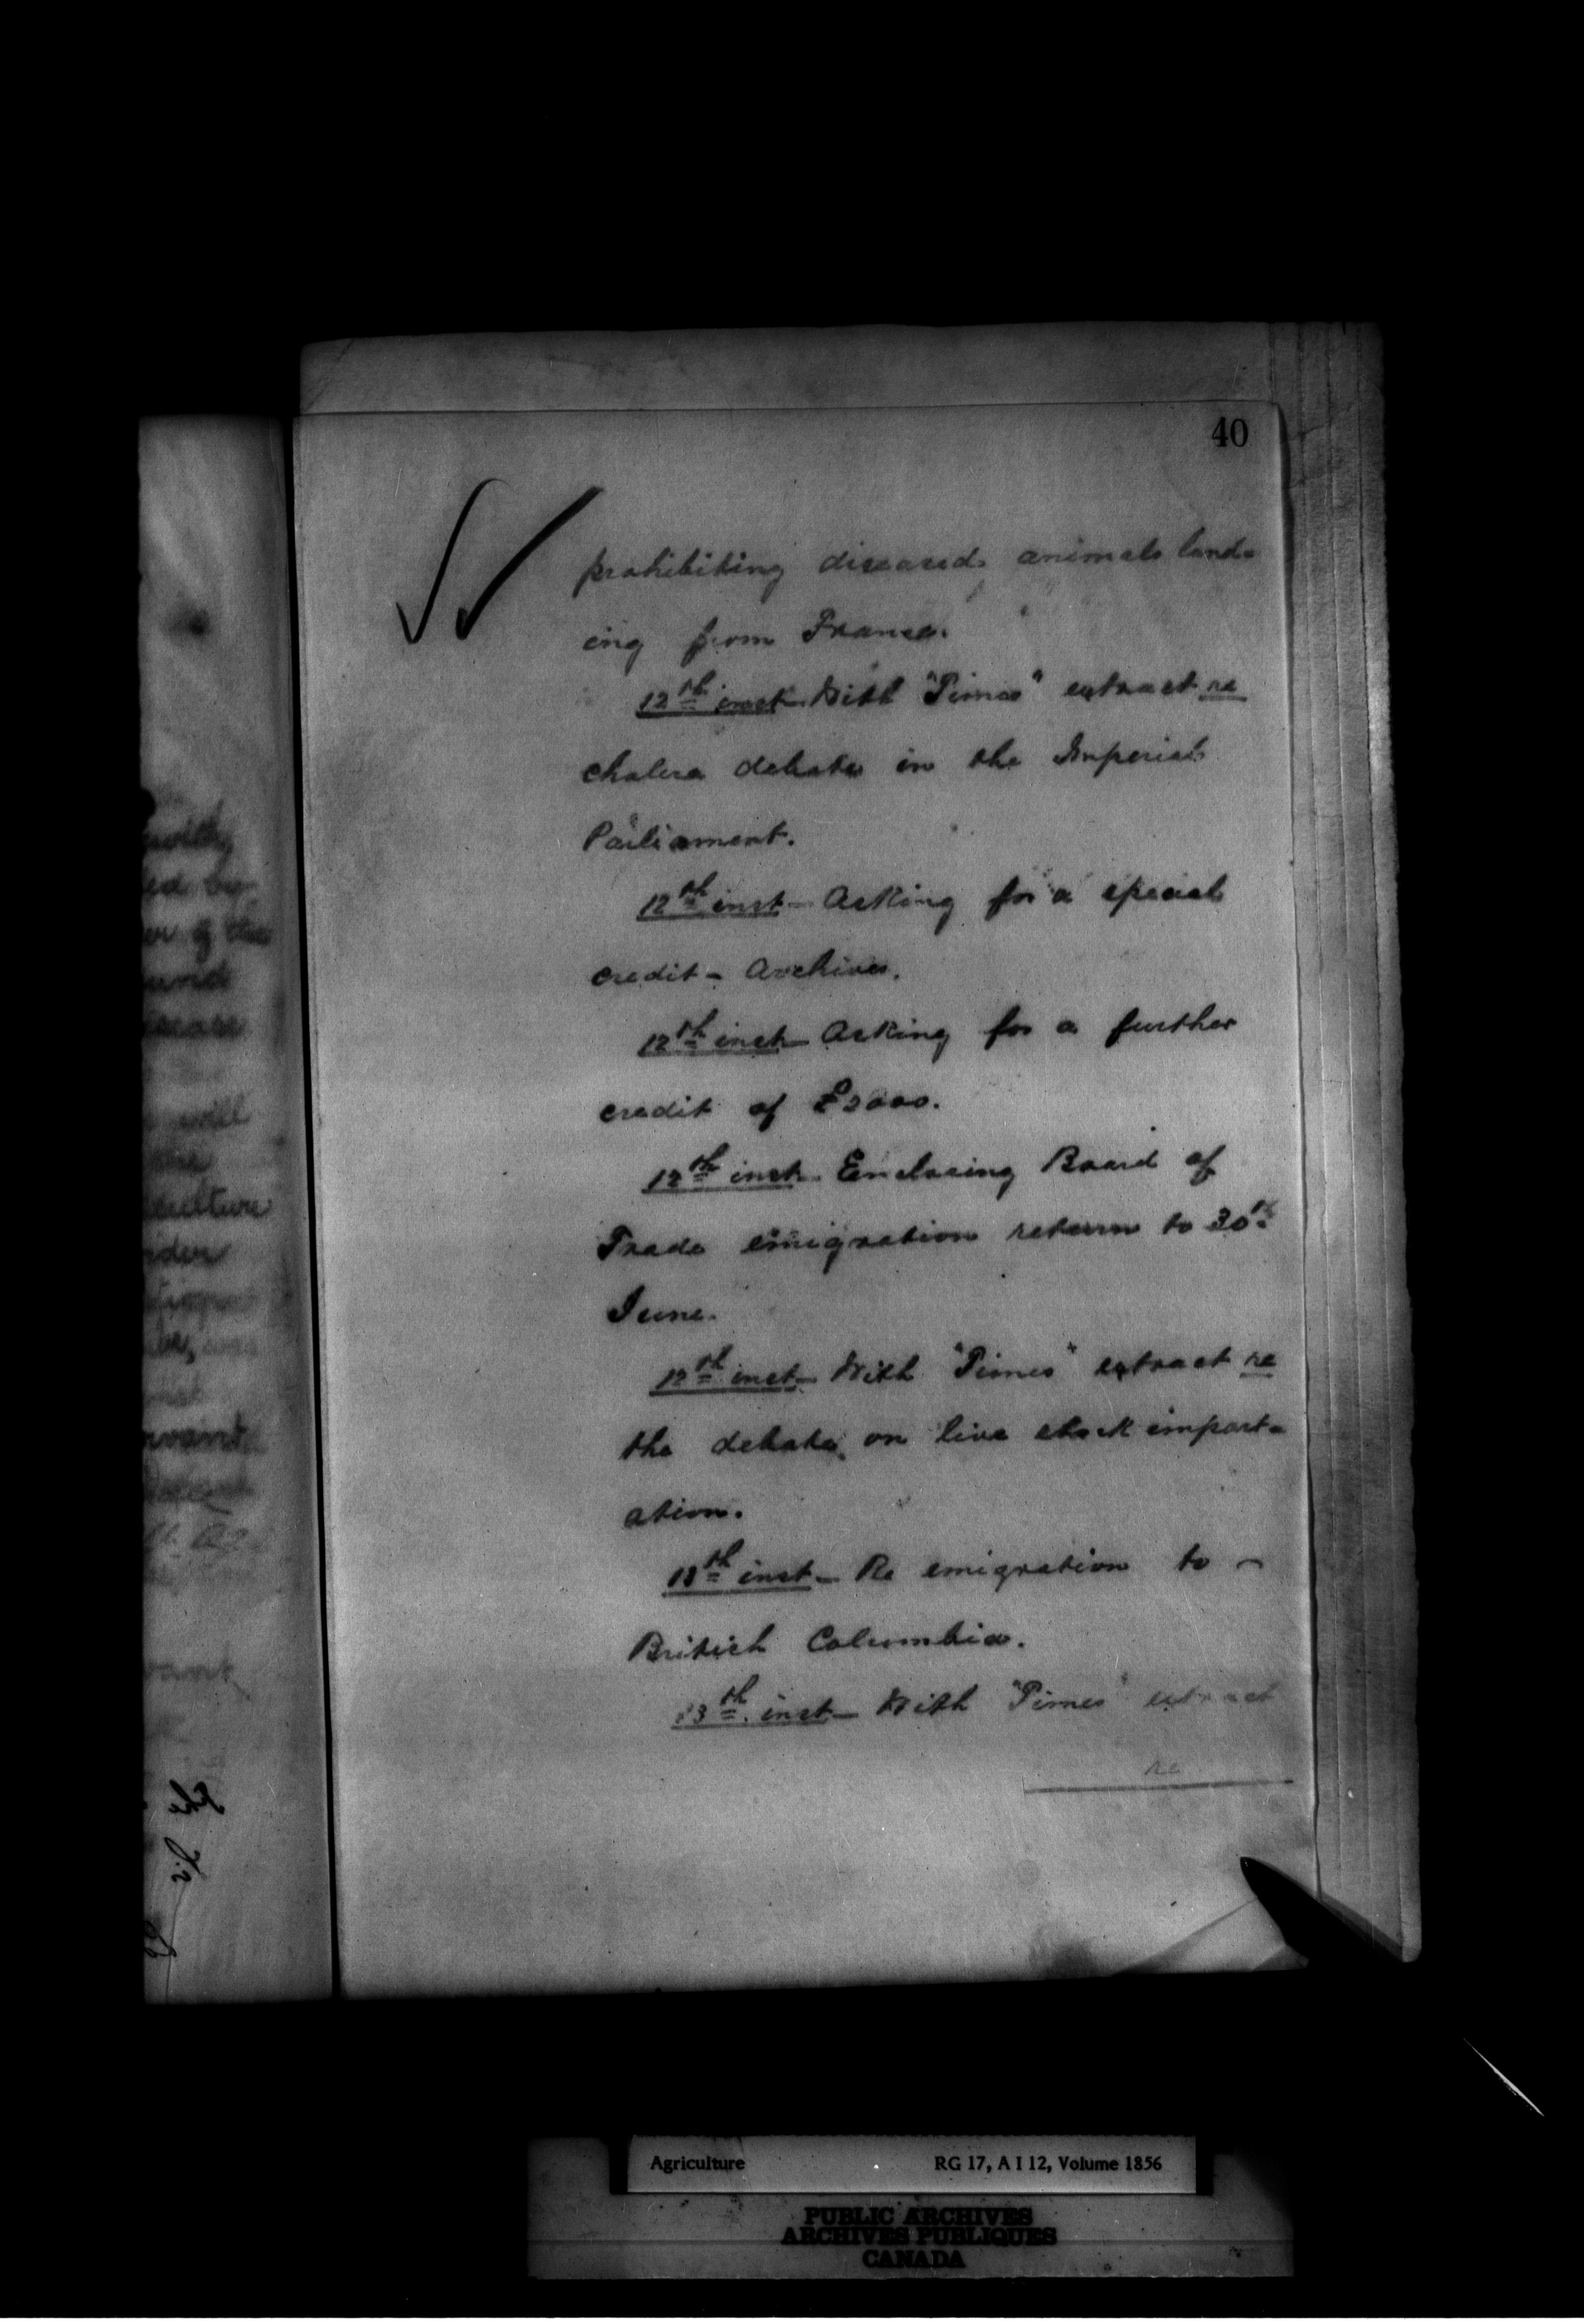 40
prohibiting diseased animals land-
ing from France.
12th inst - With "Times" extract re
cholera debate in the Imperial
Parliament.
12th inst - Asking for a special
credit - Archives.
12th inst - Asking for a further
credit of £2000.
12th inst - Enclosing Board of
Trade emigration return to 30th
June.
12th inst - With "Times" extract re
the debate on live stock import-
ation.
13th inst - Re emigration to -
British Columbia.
13th inst - With "Times" extract
re
with
ed by
er of the
will
culture
Agriculture RG 17, A I 12, Volume 1856
PUBLIC ARCHIVES
ARCHIVES PUBLIQUES
CANADA